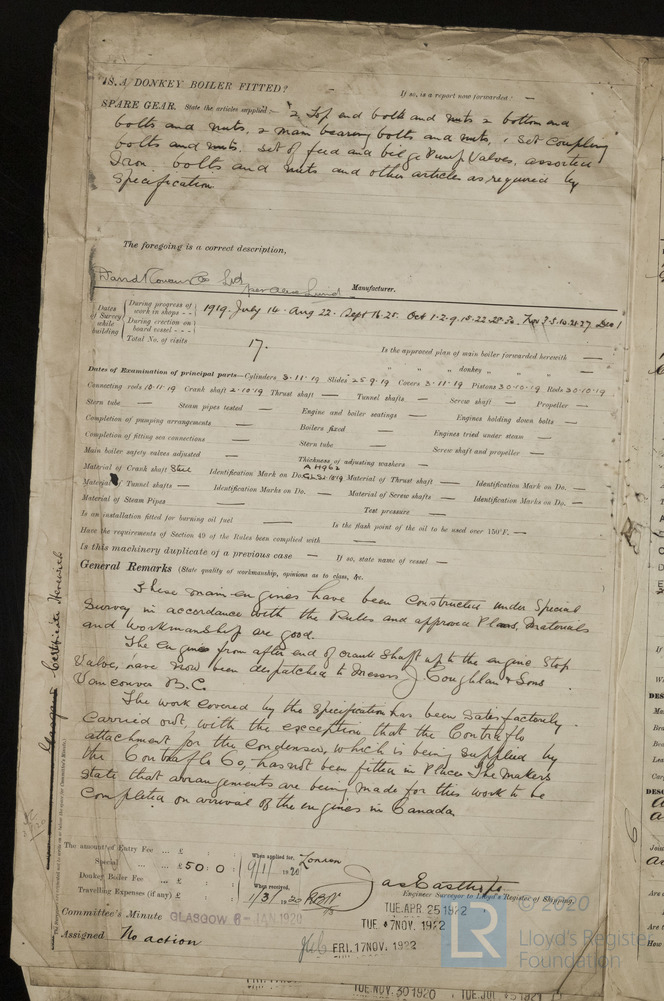 18. A DONKEY BOILER FITTED? If so, is a report now forwarded —
SPARE GEAR. State the articles supplied:— 2 Top end bolts and nuts 2 bottom end
bolts and nuts, 2 main bearing bolts and nuts, 1 Set Coupling
bolts and nuts. Set of feed and bilge Pump Valves, assorted
Iron bolts and nuts and other articles as required by
Specification
The foregoing is a correct description,
David Rowan & Co Ltd Manufacturer.
Dates of Survey while building
During progress of work in shops - - 1919. July 14. Aug 22. Sept 16. 25. Oct 1. 2. 9. 15. 22. 28. 30. Nov 3. 5. 10. 21. 27. Dec 1
During erection on board vessel - - -
Total No. of visits 17.
Is the approved plan of main boiler forwarded herewith —
" " " donkey " " " —
Dates of Examination of principal parts—Cylinders 3-11-19 Slides 25-9-19 Covers 3-11-19 Pistons 30-10-19 Rods 30-10-19
Connecting rods 10-11-19 Crank shaft 2-10-19 Thrust shaft — Tunnel shafts — Screw shaft — Propeller —
Stern tube — Steam pipes tested — Engine and boiler seatings — Engines holding down bolts —
Completion of pumping arrangements — Boilers fixed — Engines tried under steam —
Completion of fitting sea connections — Stern tube — Screw shaft and propeller —
Main boiler safety valves adjusted — Thickness of adjusting washers —
Material of Crank shaft Steel Identification Mark on Do. Material of Thrust shaft — Identification Mark on Do. —
Material of Tunnel shafts — Identification Marks on Do. — Material of Screw shafts — Identification Marks on Do. —
Material of Steam Pipes — Test pressure —
Is an installation fitted for burning oil fuel — Is the flash point of the oil to be used over 150°F. —
Have the requirements of Section 49 of the Rules been complied with —
Is this machinery duplicate of a previous case — If so, state name of vessel —
General Remarks (State quality of workmanship, opinions as to class, &c.
These main engines have been constructed under Special
Survey in accordance with the Rules and approved Plans, Materials
and workmanship are good.
The engines from after end of crank shaft up to the engine Stop
Valve, have now been despatched to Messrs J. Coughlan & Sons
Vancouver B.C.
The work covered by the Specification has been satisfactorily
Carried out, with the exception, that the Contraflo
attachment for the Condenser, which is being supplied by
the Contraflo Co, has not been fitted in Place. The makers
state that arrangements are being made for this work to be
Completed on arrival of the engines in Canada.
Certificate Herewith
The amount of Entry Fee ... £ : :
Special ... ... £ 50 : 0 :
Donkey Boiler Fee ... £ : :
Travelling Expenses (if any) £ : :
When applied for, London
9/1/1920
When received,
1/3/1920
Jas Easthope
Engineer Surveyor to Lloyd's Register of Shipping.
Committee's Minute GLASGOW 6 - JAN. 1920
TUE. APR 25 1922
TUE. 7 NOV. 1922
Assigned No action
FRI. 17 NOV. 1922
TUE. NOV. 30 1920
LR © 2020
Lloyd's Register
Foundation